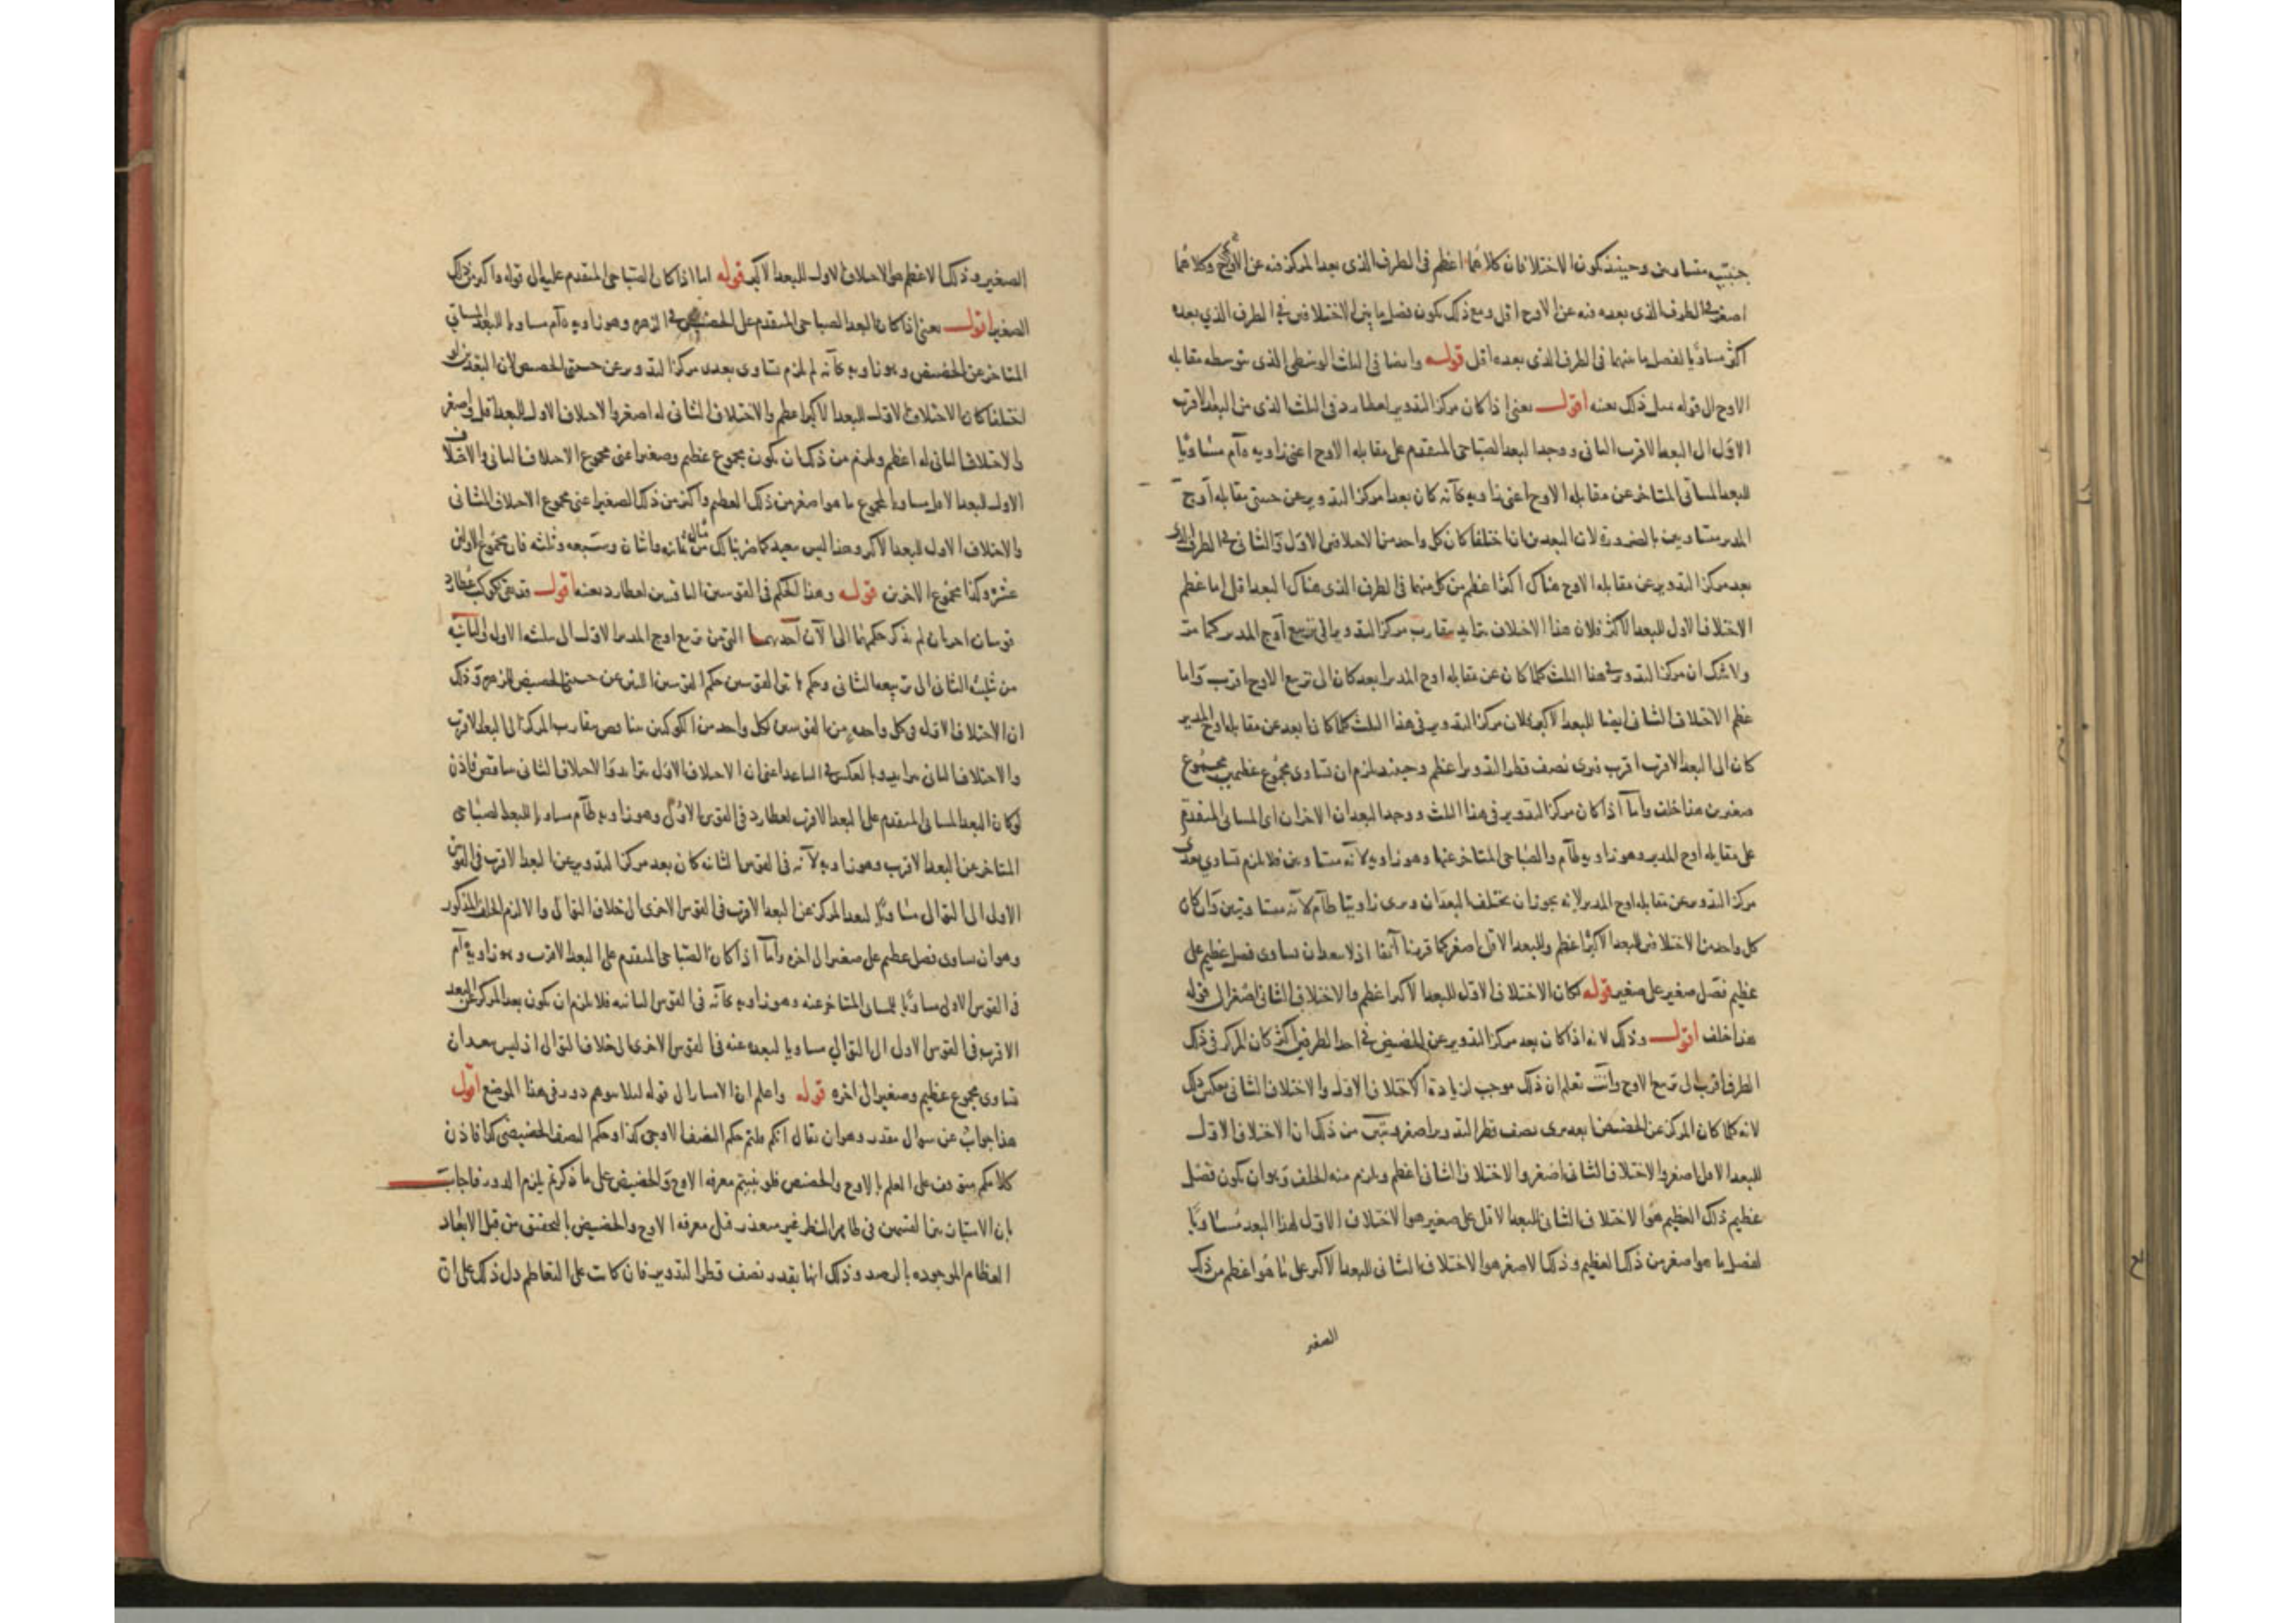 جنبتيه متساويين وحينئذ يكون الاختلافان كلاهما اعظم فى الطرف الذى بعد المركز فيه عن الاوج اكثر وكلاهما
اصغر فى الطرف الذى بعده فيه عن الاوج اقل ومع ذلك يكون فضل ما بين الاختلافين فى الطرف الذي بعده
اكثر مساويا لفضل ما بينهما فى الطرف الذى بعده اقل قوله وايضا فى الثلث الوسطى الذى يتوسطه مقابله
الاوج الى قوله مثل ذلك بعينه اقول يعنى اذا كان مركز التدوير لعطارد فى الثلث الذى من البعد الاقرب
الاول الى البعد الاقرب الثانى ووجد البعد الصباحى المتقدم على مقابله الاوج اعنى زاويه ه‍آم مساويا
للبعد المسائى المتاخر عن مقابله الاوج اعنى زاويه كآنه كان بعدا مركز التدوير عن جنبتى مقابله اوج
المدير متساويين بالضرورة لان البعدين ان اختلفا كان كل واحد من الاختلافين الاول والثانى فى الطرف الذى
بعد مركز التدوير عن مقابله الاوج هناك اكثر اعظم من كل منهما فى الطرف الذى هناك البعد اقل اما عظم
الاختلاف الاول للبعد الاكثر فلان هذا الاختلاف يتزايد بتقارب مركز التدوير الى تربيع اوج المدير كما مر
ولا شك ان مركز التدوير فى هذا الثلث كلما كان عن مقابله اوج المدير ابعد كان الى تربيع الاوج اقرب واما
عظم الاختلاف الثانى ايضا للبعد الاكبر فلان مركز التدوير فى هذا الثلث كلما كان ابعد عن مقابله اوج المدير
كان الى البعد الاقرب اقرب فيرى نصف قطر التدوير اعظم وحينئذ يلزم ان يتساوى مجموع عظيمين مجموع
صغيرين هذا خلف واما اذا كان مركز التدوير فى هذا الثلث ووجد البعدان الاخران اى المسائى المتقدم
على مقابله اوج المدير وهو زاويه طآم والصباحى المتاخر عنها وهو زاويه لآنه متساويين فلا يلزم تساوي بعدى
مركز التدوير عن مقابله اوج المدير لانه يجوز ان يختلف البعدان ويرى زاويتا طآم لآنه متساويتين وان كان
كل واحد من الاختلافين للبعد الاكثر اعظم وللبعد الاقل اصغر كما قررنا آنفا اذ لا يبعد ان يساوى فضل عظيم على
عظيم فضل صغير على صغير قوله لكان الاختلاف الاول للبعد الاكبر اعظم والاختلاف الثانى اصغر الى قوله
هذا خلف اقول وذلك لانه اذا كان بعد مركز التدوير عن الحضيض فى احد الطرفين اكثر كان المركز فى ذلك
الطرف اقرب الى تربيع الاوج وانت تعلم ان ذلك موجب لزيادة الاختلاف الاول والاختلاف الثانى بعكس ذلك
لانه كلما كان المركز عن الحضيض ابعد يرى نصف قطر التدوير اصغر وتبين من ذلك ان الاختلاف الاول
للبعد الاقل اصغر والاختلاف الثانى اصغر والاختلاف الثانى اعظم ويلزم منه الخلف وهو ان يكون فضل
عظيم ذلك العظيم هو الاختلاف الثانى للبعد الاقل على صغير هو الاختلاف الاول لهذا البعد مساويا
لفضل ما هو اصغر من ذلك العظيم وذلك الاصغر هو الاختلاف الثانى للبعد الاكبر على ما هو اعظم من ذلك
الصغير
الصغير وذلك الاعظم هو الاختلاف الاول للبعد الاكبر قوله اما اذا كان الصباحى المتقدم عليه الى قوله واكبر من ذلك
الصغير اقول يعنى اذا كان البعد الصباحى المتقدم على الحضيض فى الزهره وهو زاويه ه‍آم مساويا للبعد المسائى
المتاخر عن الحضيض وهو زاويه كآنه لم يلزم تساوى بعدى مركز التدوير عن جنبتى الحضيض لان البعدين لو
اختلفا كان الاختلاف الاول للبعد الاكبر اعظم والاختلاف الثانى له اصغر والاختلاف الاول للبعد الاقل اصغر
والاختلاف الثانى له اعظم ويلزم من ذلك ان يكون مجموع عظيم وصغير اعنى مجموع الاختلاف الثانى والاختلاف
الاول للبعد الاقل مساويا لمجموع ما هو اصغر من ذلك العظيم واكبر من ذلك الصغير اعنى مجموع الاختلاف الثانى
والاختلاف الاول للبعد الاكبر وهذا ليس ببعيد كما ضربنا لك مثاله من ثمانيه واثنان وسبعه وثلثه فان مجموع الاولين
عشره وكذا مجموع الاخرين قوله وهذا الحكم فى القوسين الباقيتين لعطارد بعينه اقول قد بقى لكوكب عطارد
قوسان اخريان لم يذكر حكمهما الى الآن احديهما التى من تربيع اوج المدير الاول الى تثليثه الاول والثانيه
من تثليثه الثانى الى تربيعه الثانى وحكم هاتين القوسين حكم القوسين اللتين عن جنبتى الحضيض للزهره وذلك
ان الاختلاف الاول فى كل واحده من القوسين لكل واحد من الكوكبين متناقص بتقارب المركز الى البعد الاقرب
والاختلاف الثانى متزايد وبالعكس فى التباعد اعنى ان الاختلاف الاول متزايد والاختلاف الثانى متناقص فاذن
لو كان البعد المسائى المتقدم على البعد الاقرب لعطارد فى القوس الاولى وهو زاويه طآم مساويا للبعد الصباحى
المتاخر عن البعد الاقرب وهو زاويه لآنه فى القوس الثانيه كان بعد مركز التدوير عن البعد الاقرب فى القوس
الاولى الى التوالى مساويا لبعد المركز عن البعد الاقرب فى القوس الاخرى الى خلاف التوالى والا لزم الخلف المذكور
وهو ان يساوى فضل عظيم على صغير الى اخره واما اذا كان الصباحى المتقدم على البعد الاقرب وهو زاوية ه‍آم
فى القوس الاولى مساويا للمسائى المتاخر عنه وهو زاويه كآنه فى القوس الثانيه فلا يلزم ان يكون بعد المركز عن البعد
الاقرب فى القوس الاول الى التوالي مساويا لبعده عنه فى القوس الاخرى الى خلاف التوالى اذ ليس ببعيد ان
يتساوى مجموع عظيم وصغير الى اخره قوله واعلم ان الامتياز الى قوله لئلا يتوهم دور فى هذا الموضع اقول
هذا جواب عن سوال مقدر وهو ان يقال انكم قلتم حكم النصف الاوجى كذا وحكم النصف الحضيضى كذا فاذن
كلامكم متوقف على العلم بالاوج والحضيض فلو بنيتم معرفه الاوج والحضيض على ما ذكرتم يلزم الدور فاجاب
بان الامتياز بين القسمين فى ظاهر النظر غير متعذر قبل معرفه الاوج والحضيض بالتحقيق من قبل الابعاد
العظام الموجوده بالرصد وذلك انها بقدر نصف قطر التدوير فان كانت على التعاظم دل ذلك على ان